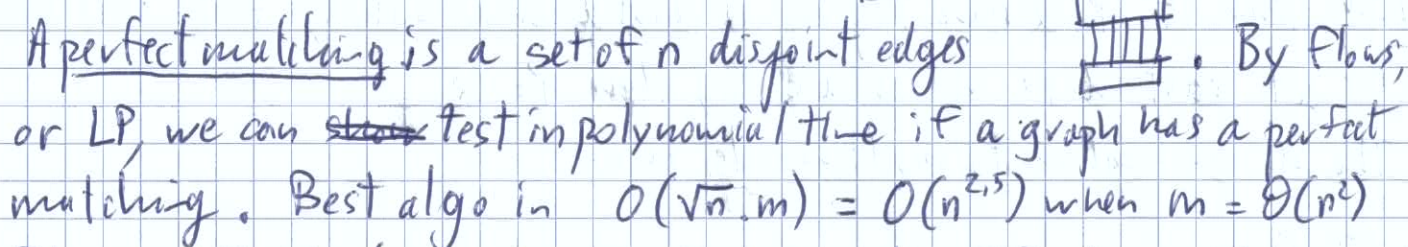 A perfect matching is a set of n disjoint edges . By flows,
or LP, we can test in polynomial time if a graph has a perfect
matching. Best algo in O(√n.m) = O(n^2,5) when m = Θ(n²)